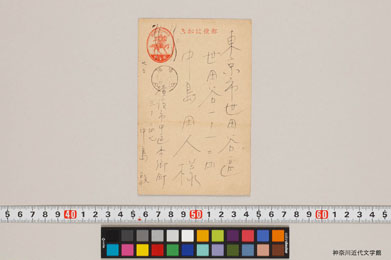 郵便はがき
東京市世田谷区
世田谷一ノ一二四
中島田人様
横浜市中区本郷町
中島敦
5 6 7 8 9 40 1 2 3 4 5 6 7 8 9 50 1 2 3 4 5 6 7 8 9 60 1 2 3 4 5
神奈川近代文学館